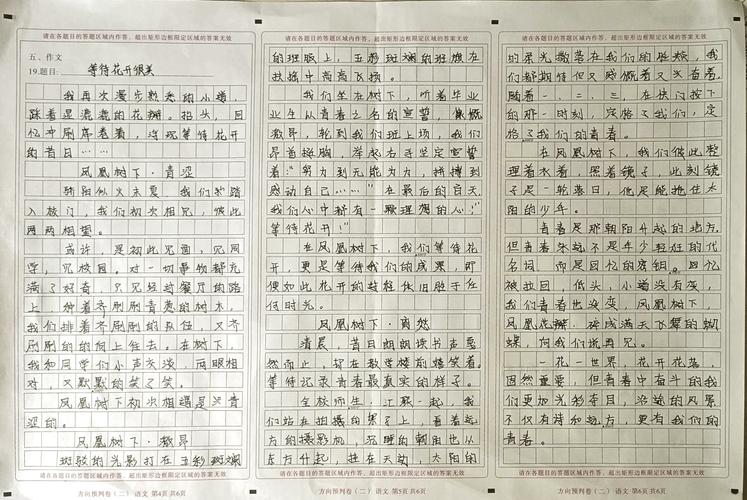 请在各题目的答题区域内作答，超出矩形边框限定区域的答案无效
五、作文
19.题目: 等待花开很美
我再次漫步熟悉的小道，
踩着星星般的花瓣。抬头，回
忆冲刷席卷着，浮现等待花开
的昔日……
凤凰树下·青涩
骄阳似火未夏，我们初踏
入校门，我们初次相见，彼此
两两相望。
或许，是初此见面，见同
学，见校园。对一切事物都充
满了好奇，只见经过餐厅的路
上，种着齐刷刷青葱的树木，
我们排着齐刷刷的队伍，又齐
刷刷的的向上住去。在树下，
我和同学们小声交谈，两眼相
对，又默默的笑了笑。
凤凰树下初次相遇是只青
涩的。
凤凰树下·激昂
斑驳的光影打在五彩斑斓
请在各题目的答题区域内作答，超出矩形边框限定区域的答案无效
方向预判卷（二） 语文 第4页 共6页
请在各题目的答题区域内作答，超出矩形边框限定区域的答案无效
的班服上，五彩斑斓的班旗在
操场中高高飞扬。
我们坐在树下，听着毕业
业生从青春之名的宣誓，慷慨
激昂，轮到我们班上场，我们
昂首挺胸，举起右手坚定宣誓
着："努力到无能为力，拼搏到
感动自己……"在最后的百天，
我们心中都有一颗理想的心！"
等待花开！"
在凤凰树下，我们等待花
开，更是等待我们的成果，即
便如此花开的过程依旧胜于任
何时光。
凤凰树下·离然
清晨，昔日朗朗读书声戛
然而止，留在教学楼前嬉笑着。
等待记录青春最真实的样子。
全校师生，汇聚一起，我
们站在拍摄的架子上，看着远
方的摄影机，沉睡的朝阳也从
东方升起，挂在天边，太阳闲
请在各题目的答题区域内作答，超出矩形边框限定区域的答案无效
方向预判卷（二） 语文 第5页 共6页
请在各题目的答题区域内作答，超出矩形边框限定区域的答案无效
的柔光撒落在我们的脸颊，我
们都期待但又感慨着又笑着看。
随着一、二、三，在快门按下
的那一时刻，定格了我们，定
格了我们的青春。
在凤凰树下，我们彼此整
理着衣着，照着镜子，此刻镜
子是一轮蓑日，他是能抱住太
阳的少年。
青春是那朝阳升起的地方，
但青春永远不是年少轻狂的代
名词，而是回忆的房钥。回忆
被拉回，低头，小道没有变，
我们青春也没变，凤凰树下，
凤凰花瓣，碎成满天飞舞的蝴
蝶，向我们说再见。
一花一世界，花开花落，
固然重要，但青春中奋斗的我
们更加光彩夺目，沿途的风景
不仅有诗和远方，更有我们的
青春。
请在各题目的答题区域内作答，超出矩形边框限定区域的答案无效
方向预判卷（二） 语文 第6页 共6页